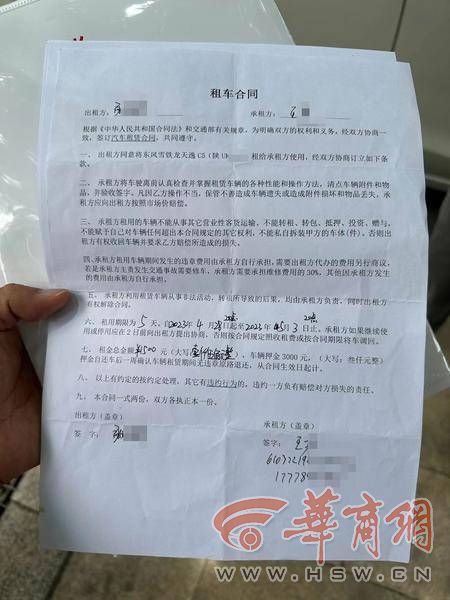 租车合同
出租方： 承租方：王
根据《中华人民共和国合同法》和交通部有关规章，为明确双方的权利和义务，经双方协商一
致，签订汽车租赁合同，共同遵守。
一、出租方同意将东风雪铁龙天逸C5（陕U 租给承租方使用，经双方协商订立如下条
款。
二、承租方将车驶离前认真检查并掌握租赁车辆的各种性能和操作方法，清点车辆附件和物
品，并验收签字。凡因乙方操作不当，保管不善造成车辆遗失或造成附件损坏和物品丢失，承
租方应向出租方按照市场价赔偿。
三、承租方租用的车辆不能从事其它营业性客货运输，不能转租、转包、抵押、投资、赠与、
不能赋予自己对车辆任何超出本合同规定的其它权利，不能私自拆装甲方的车体(件)。否则出
租方有权收回车辆并要求乙方赔偿所造成的损失。
四、承租方租用车辆期间发生的违章费用由承租方自行承担，需要出租方代办的费用另行商议，
若是承租方主责发生交通事故需要修车，承租方需要承担维修费用的30%。其他因承租方发生
的费用由承租方自行承担。
五、承租方利用租赁车辆从事非法活动，转卖所导致的后果，均由承租方负责，同时出租方
有权解除合同。
六、租用期限为5天，自2023年4月28日起至2023年05月3日止。承租方如果继续使
用或停用应在2日前向出租方提出协商，否则按合同规定照收租费或按合同期限将车调回。
七、租金总金额¥1500元（大写：壹仟伍佰整），车辆押金3000元，（大写：叁仟元整）
押金自还车后一周确认车辆租赁期间无违章原路退还，从合同生效日起计。
八、以上有约定的按约定处理，其它有违约行为的，违约一方负有赔偿对方损失的责任。
九、本合同一式两份，双方各执正本一份。
出租方（盖章） 承租方（盖章）
签字： 签字：王
61072219
17778
華商網
WWW.HSW.CN